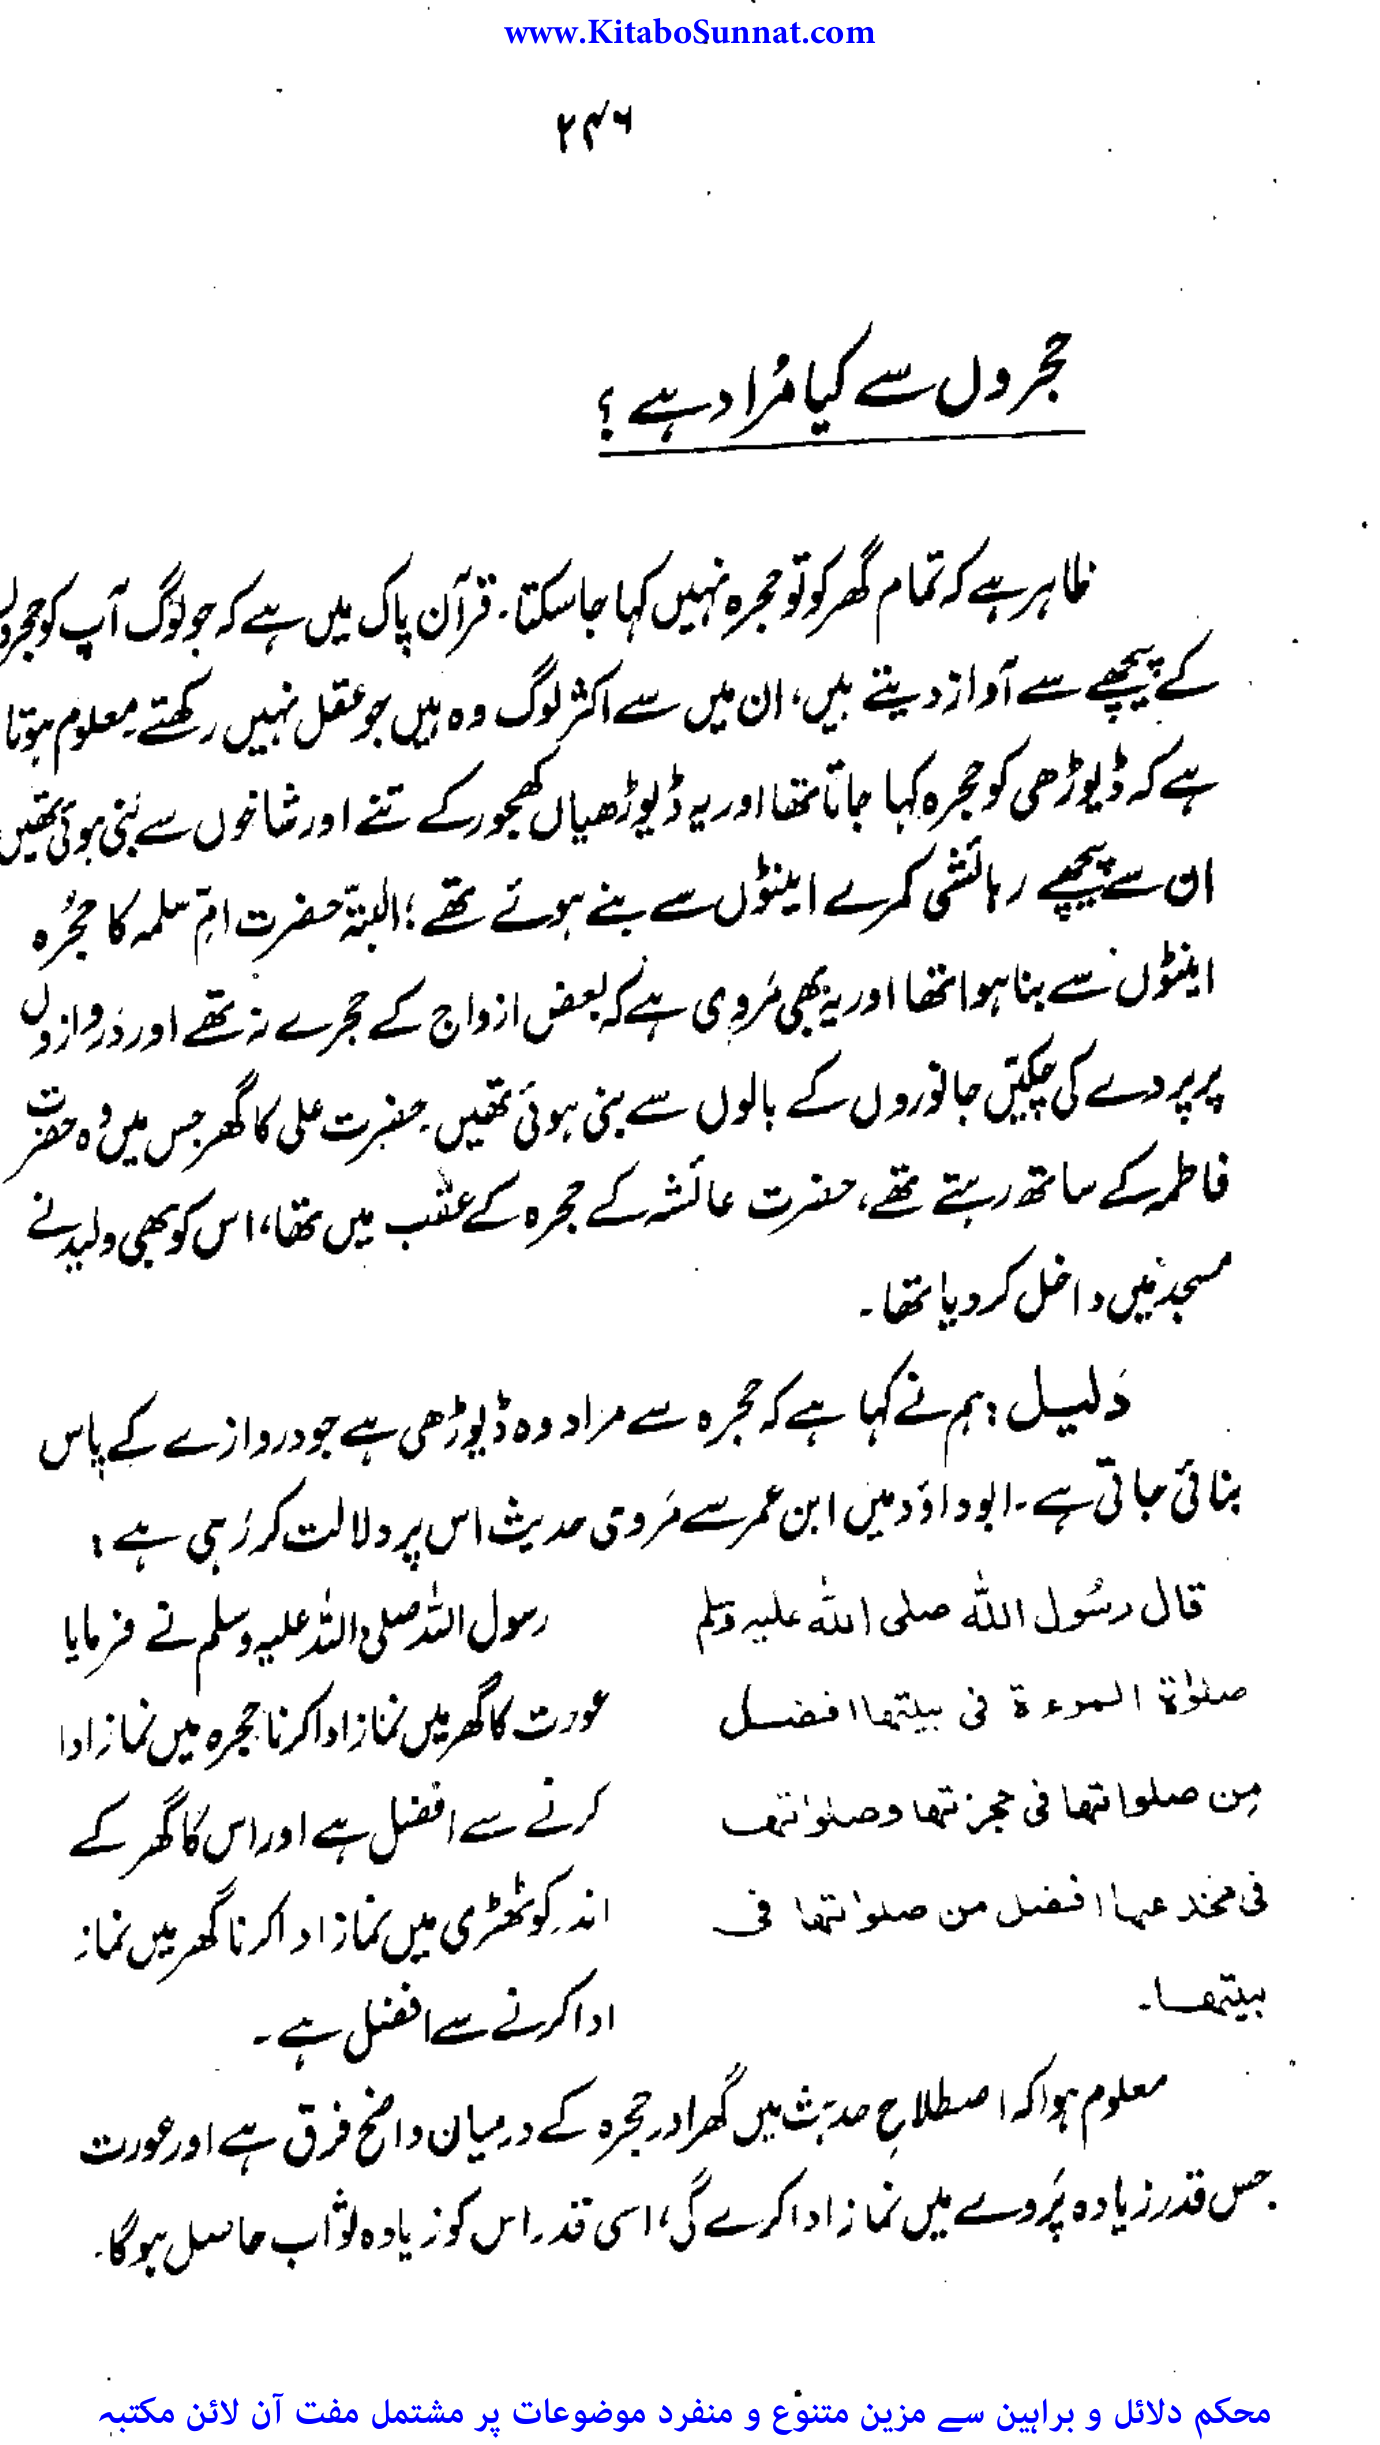 www.KitaboSunnat.com
۲۴۶
حجروں سے کیا مُراد ہے ؟
ظاہر ہے کہ تمام گھر کو تو حجرہ نہیں کہا جا سکتا۔ قرآن پاک میں ہے کہ جو لوگ آپ کو حجروں
کے پیچھے سے آواز دیتے ہیں، ان میں سے اکثر لوگ وہ ہیں جو عقل نہیں رکھتے۔ معلوم ہوتا
ہے کہ ڈیوڑھی کو حجرہ کہا جاتا تھا اور یہ ڈیوڑھیاں کھجور کے تنے اور شاخوں سے بنی ہوئی تھیں
ان سے پیچھے رہائشی کمرے اینٹوں سے بنے ہوئے تھے؛ البتہ حضرت امِّ سلمہ کا حجرُہ
اینٹوں سے بنا ہوا تھا اور یہ بھی مَروِی ہے کہ بعض ازواج کے حجرے نہ تھے اور دَروازوں
پر پردے کی چکیں جانوروں کے بالوں سے بنی ہوئی تھیں۔ حضرت علی کا گھر جس میں وُہ حضرت
فاطمہ کے ساتھ رہتے تھے، حضرت عائشہ کے حجرہ کے عقب میں تھا، اس کو بھی ولید نے
مسجد میں داخل کر دیا تھا۔
دَلیل : ہم نے کہا ہے کہ حجرہ سے مراد وہ ڈیوڑھی ہے جو دروازے کے پاس
بنائی جاتی ہے۔ ابوداؤد میں ابن عمر سے مَروی حدیث اس پر دلالت کر رَہی ہے :
قال رسُول اللہ صلی اللہ علیہ وسَلم
صلوٰۃ المرءۃ فی بیتھا افضل
مِن صلواتھا فی حجرتھا وصلوٰتھا
فی مخدعھا افضل من صلوٰتھا فی
بیتھا۔
رسول اللہ صلی اللہ علیہ وسلم نے فرمایا
عورت کا گھر میں نماز ادا کرنا حجرہ میں نماز ادا
کرنے سے افضل ہے اور اس کا گھر کے
اندر کوٹھڑی میں نماز ادا کرنا گھر میں نماز
ادا کرنے سے افضل ہے۔
معلوم ہوا کہ اصطلاحِ حدیث میں گھر اور حجرہ کے درمیان واضح فرق ہے اور عورت
جس قدر زیادہ پَردے میں نماز ادا کرے گی، اسی قدر اس کو زیادہ ثواب حاصل ہوگا۔
محکم دلائل و براہین سے مزین متنوع و منفرد موضوعات پر مشتمل مفت آن لائن مکتبہ